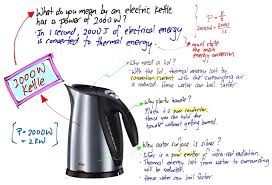 What do you mean by an electric kettle
has a power of 2000W?
In 1 second, 2000J of electrical energy
is converted to thermal energy.
P = E/t
2000W = 2000J
* must state
the main
energy conversion
2000W
Kettle
[P = 2000W
= 2kW]
Why need a lid?
With the lid, thermal energy lost by
convection current with the surrounding air is
reduced. Hence water can boil faster.
Why plastic handle?
Plastic is a poor conductor.
Hence you can hold the
handle without getting burned.
Why outer surface is silver?
Silver is a poor emitter of infra-red radiation.
Thermal energy lost from water to surrounding
will be reduced.
Hence water can boil faster.